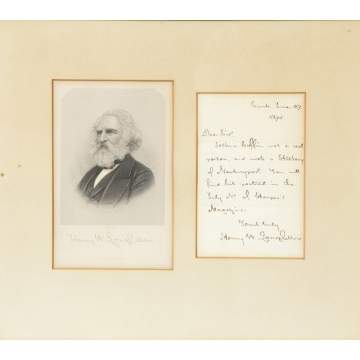 Henry W. Longfellow
Camb. June
1875
Dear Sir,
Joshua Coffin was a real
person, and wrote a History
of Newburyport. You will
find his portrait in the
July No. of Harper's
Magazine.
Yours truly
Henry W. Longfellow